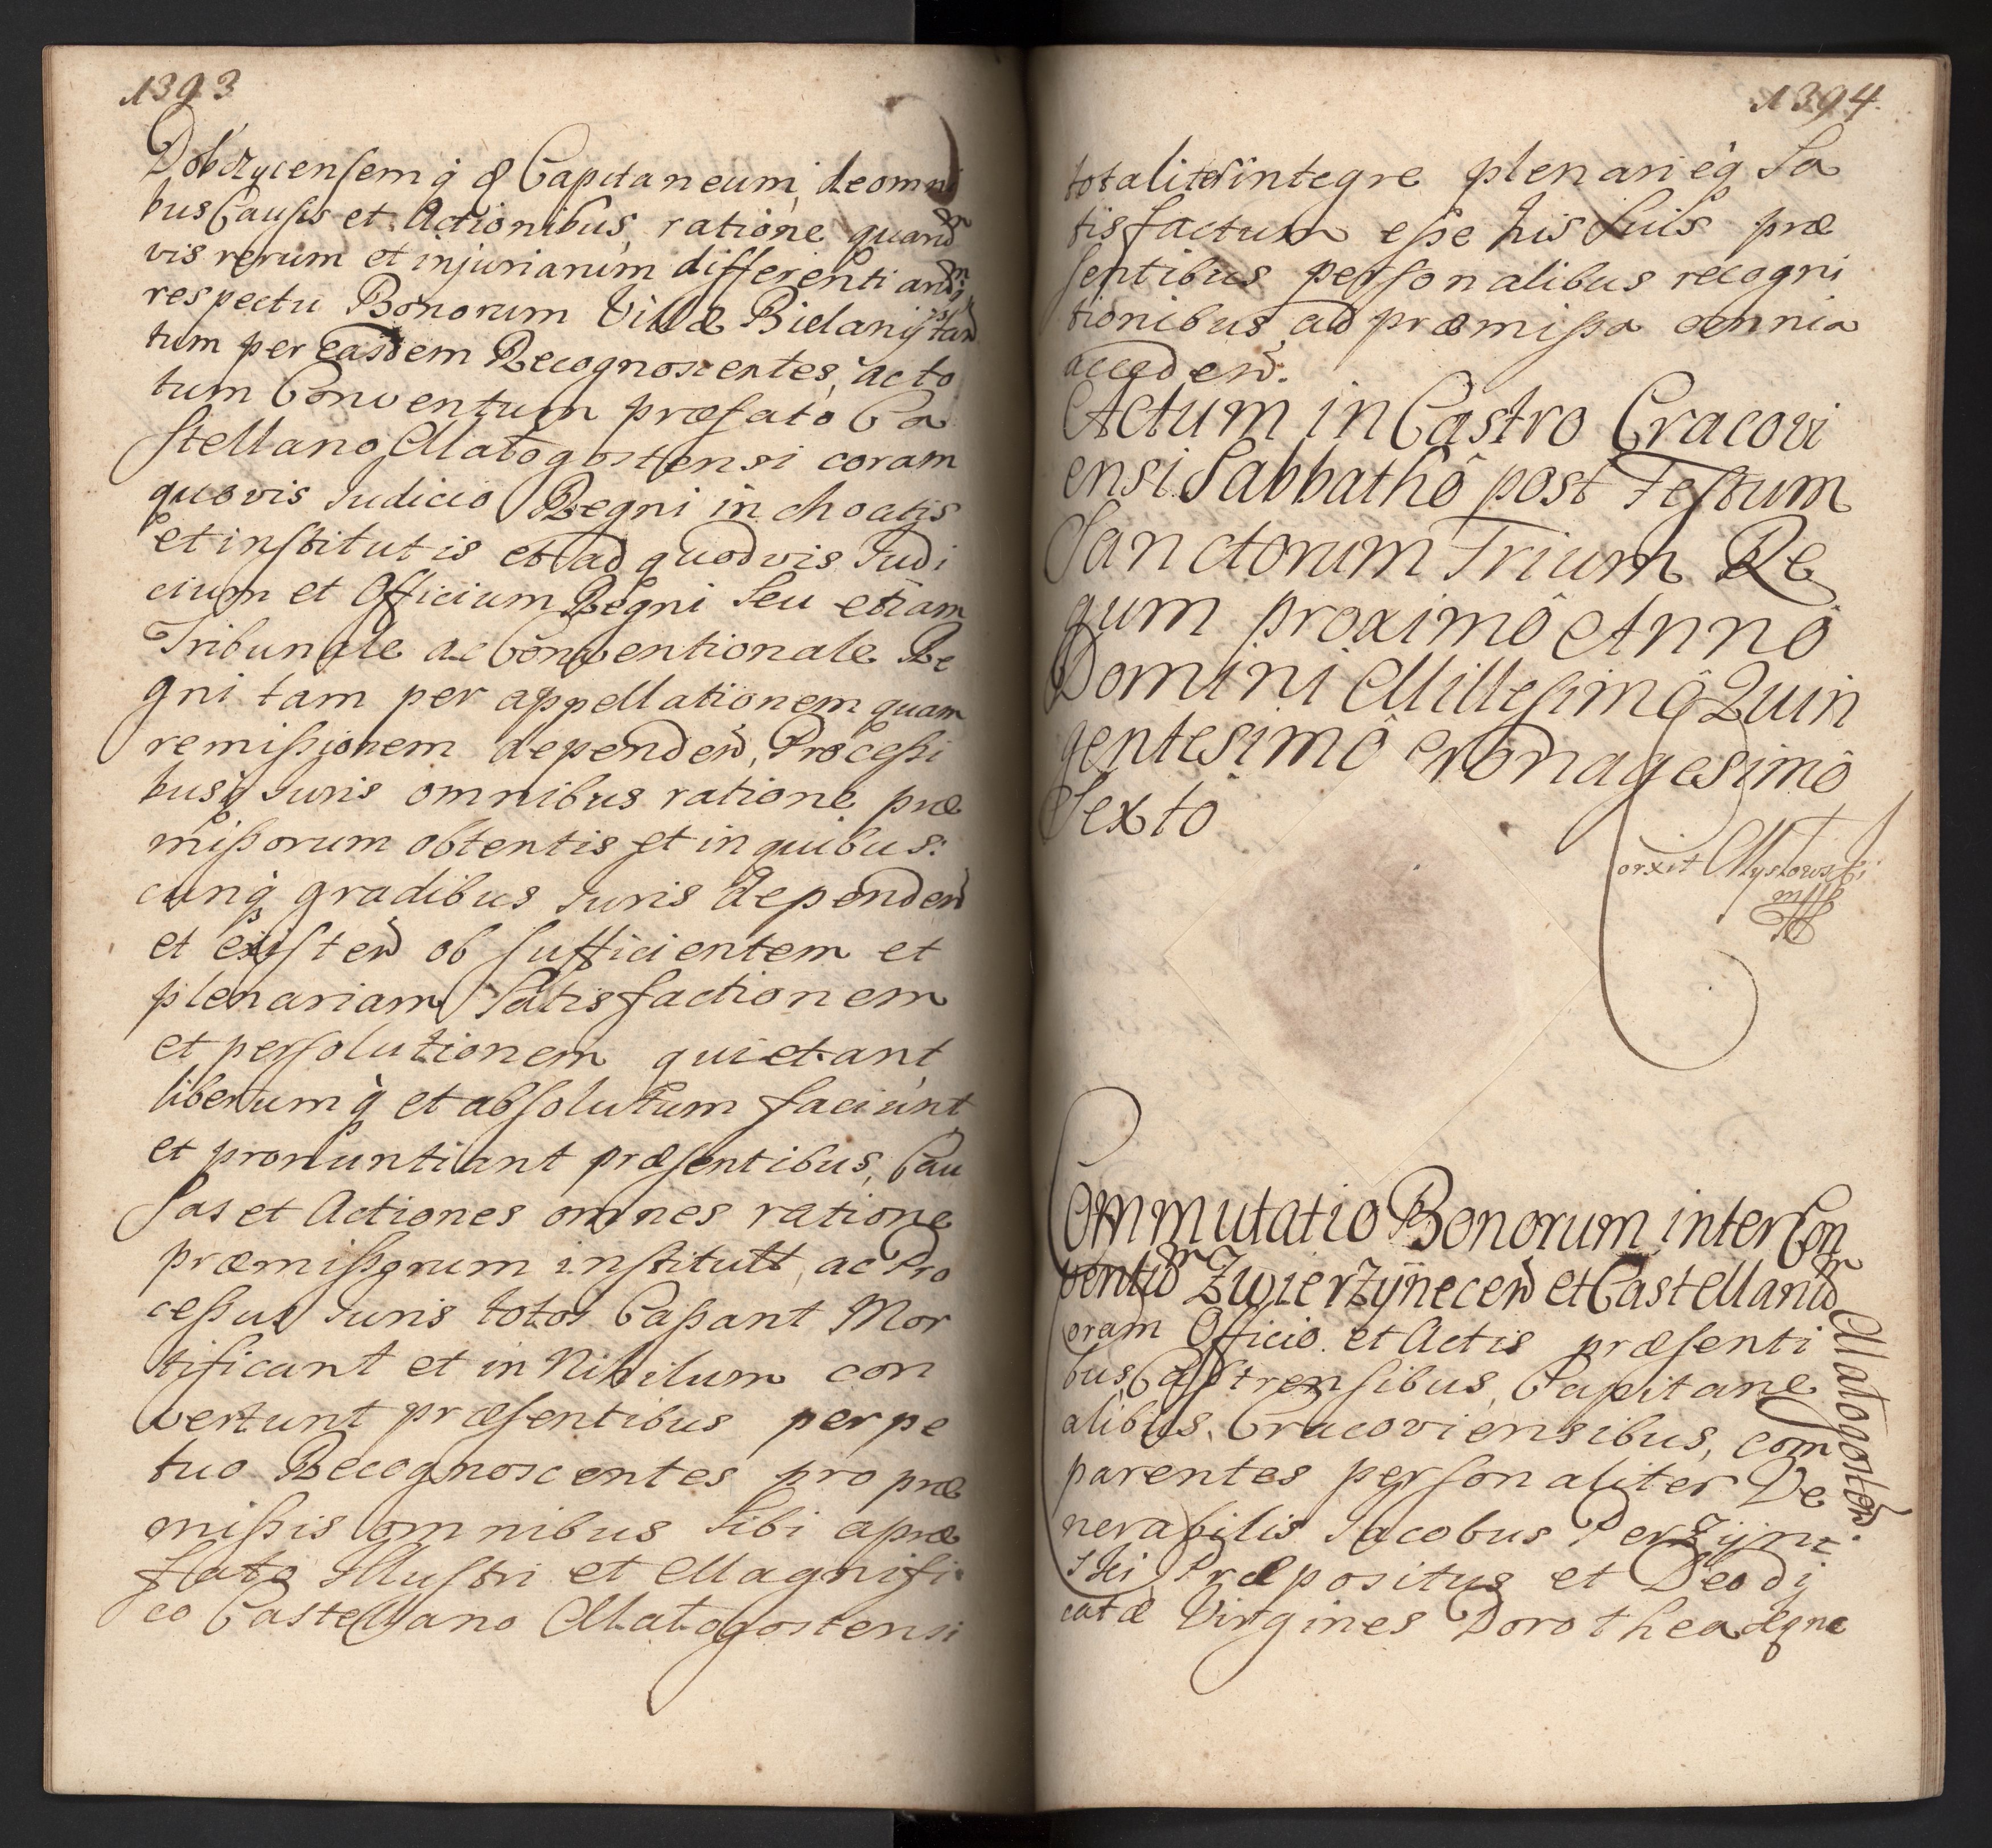 1393
Dobczycensemq́ & Capitaneum, de omni
bus Causis et Actionibus, ratione quarum
vis rerum et injuriarum differentiarum
respectu Bonorum Villæ Bielany, tan
tum per easdem Recognoscentes, ac to
tum Conventum præfato Ca
stellano Małogostensi coram
quovis Iudicio Regni inchoatis
et institutis et ad quodvis Iudi
cium et Officium Regni Seu etiam
Tribunale ac Conventionale Re
gni tam per appellationem quam
remissionem dependen, Processi
busq́ Iuris omnibus ratione præ
missorum obtentis et in quibus:
cunq́ gradibus Iuris dependen
et existen ob sufficientem et
plenariam Satisfactionem
et persolutionem quietant
liberumq́ et absolutum faciunt
et pronuntiant præsentibus, Cau
sas et Actiones omnes ratione
præmissorum institut, ac Pro
cessus Iuris totos Cassant Mor
tificant et in Nihilum con
vertunt præsentibus perpe
tuo Recognoscentes pro præ
missis omnibus Sibi a præ
fato Illustri et Magnifi
co Castellano Małogostensi
1394.
totaliter integre plenarieq́ Sa
tisfactum esse his Suis præ
sentibus personalibus recogni
tionibus ad præmissa omnia
acceden.
Actum in Castro Cracovi
ensi Sabbathô post Festum
Sanctorum Trium Re
gum proximô Annô
Domini Millesimô Quin
gentesimô Nonagesimô
Sexto
Corxit Mysłowski
mpp
Commutatio Bonorum inter Con
ventum Zwierzÿnecen et Castellanum
Małogosten
Coram Officio et Actis præsenti
bus Castrensibus, Capitane
alibus, Cracoviensibus, com
parentes personaliter Ve
nerabilis Iacobus Perzÿni
ski Præpositus et Deodi
catæ Virgines Dorothea Agne